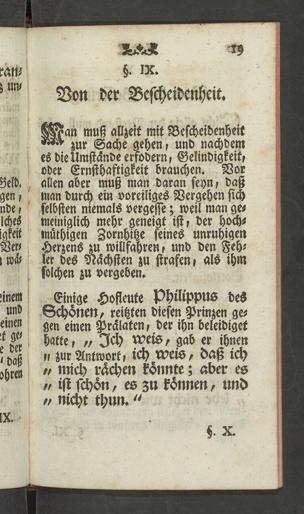 19
§. IX.
Von der Bescheidenheit.
Man muß allzeit mit Bescheidenheit
zur Sache gehen, und nachdem
es die Umstände erfodern, Gelindigkeit,
oder Ernsthaftigkeit brauchen. Vor
allen aber muß man daran seyn, daß
man durch ein voreiliges Vergehen sich
selbsten niemals vergesse; weil man ge-
meiniglich mehr geneigt ist, der hoch-
müthigen Zornhitze seines unruhigen
Herzens zu willfahren, und den Feh-
ler des Nächsten zu strafen, als ihm
solchen zu vergeben.
Einige Hofleute Philippus des
Schönen, reitzten diesen Prinzen ge-
gen einen Prälaten, der ihn beleidiget
hatte, „ Ich weis, gab er ihnen
„ zur Antwort, ich weis, daß ich
„ mich rächen könnte; aber es
„ ist schön, es zu können, und
„ nicht thun. “
§. X.